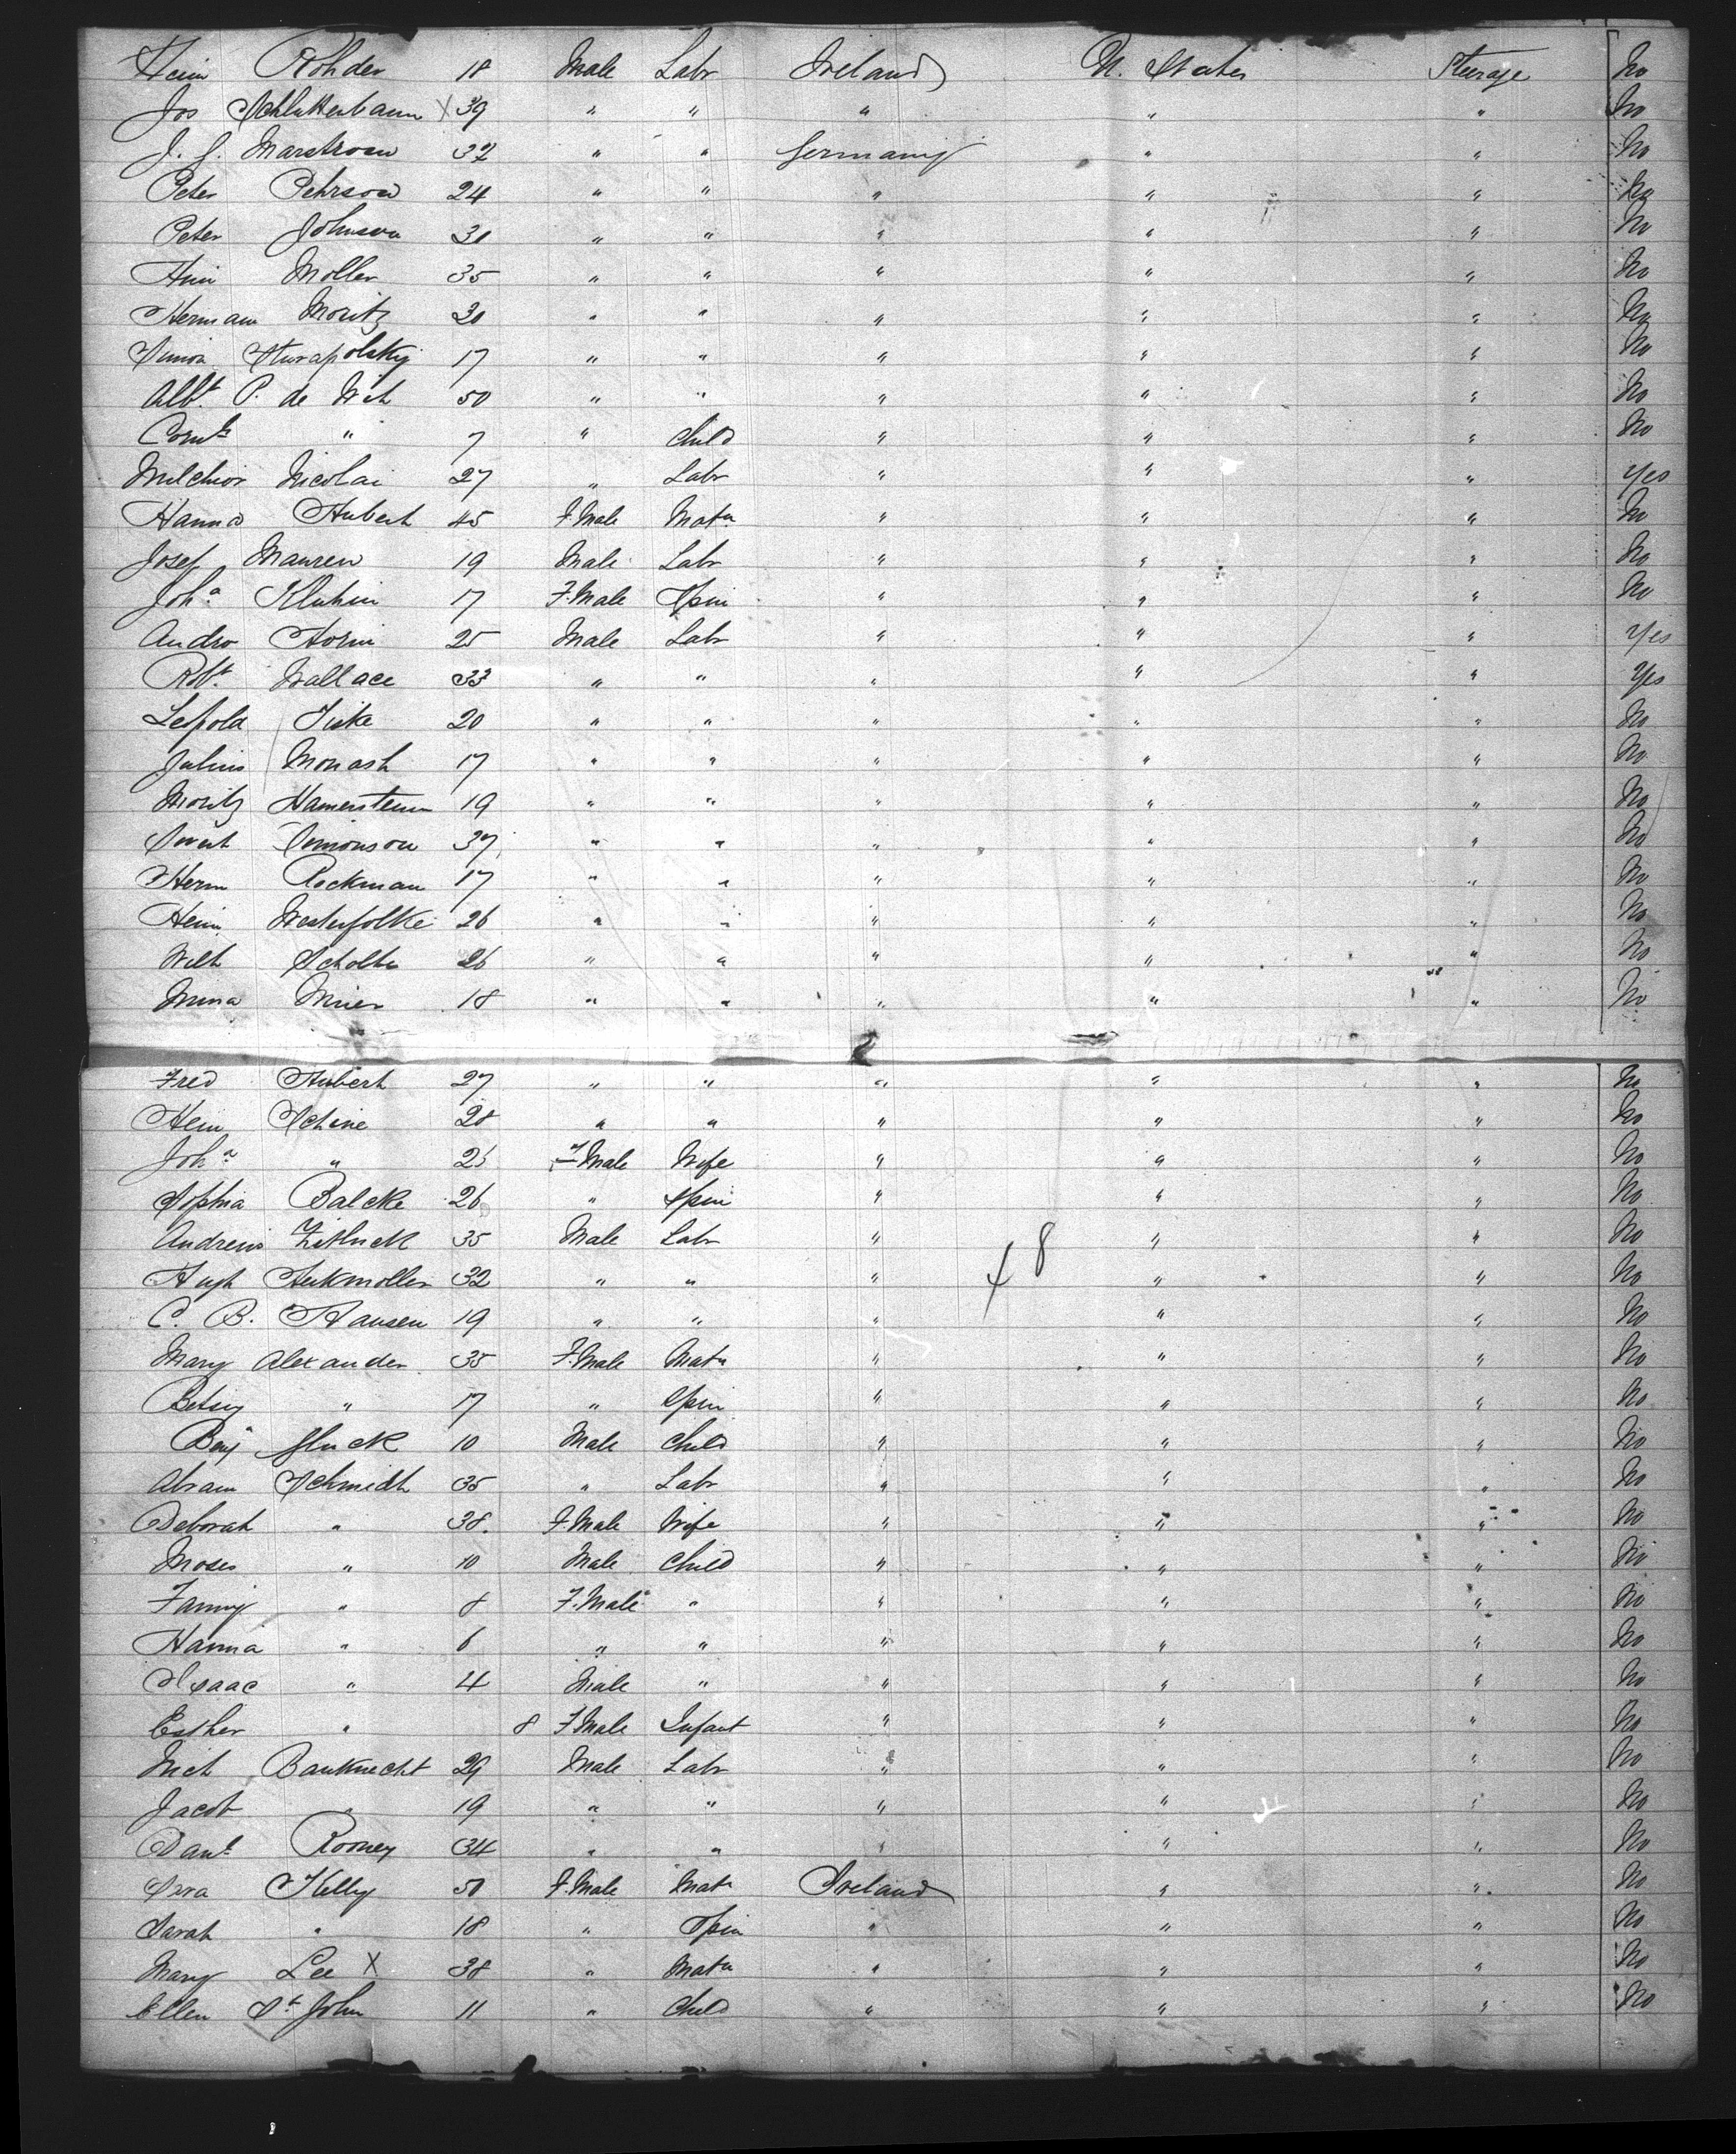 Hein Rohder 18 Male Labr Ireland U. States Steerage No
Jos Schluttenbaum X 39 " " " " " No
J. G. Marstrom 32 " " Germany " " No
Peter Pehrson 24 " " " " " No
Peter Johnson 30 " " " " " No
Hein Moller 35 " " " " " No
Hermann Moritz 30 " " " " " No
Simon 17 " " " " " No
Albt. P. de Wit 50 " " " " " No
Corns " 7 " Child " " " No
Melchior Nicolai 27 " Labr " " " Yes
Hanna Hubert 45 F.Male Matn " " " No
Josef Mauren 19 Male Labr " " " No
Joha Kluhin 17 F.Male Spin " " " No
Andro Horni 25 Male Labr " " " Yes
Robt. Wallace 33 " " " " " Yes
Lepold Fiske 20 " " " " " No
Julius Monash 17 " " " " " No
Moritz Hamerstein 19 " " " " " No
Simonson 37 " " " " " No
Herm Rockman 17 " " " " " No
Hein Westerfolke 26 " " " " " No
Wilh Scholte 26 " " " " " No
Mina Mier 18 " " " " " No
2
Fred Hubert 27 " " " " " No
Hein Schine 28 " " " " " No
Joha " 25 F.Male Wife " " " No
Sophia Balcke 26 " Spin " " " No
Andreas 35 Male Labr " " " No
48
Hugh 32 " " " " " No
C. B. Hansen 19 " " " " " No
Mary Alexander 35 F.Male Matn " " " No
Betsy " 17 " Spin " " " No
Benj Gluck 10 Male Child " " " No
Abram Schmidt 35 " Labr " " " No
Deborah " 38 F.Male Wife " " " No
Moses " 10 Male Child " " " No
Fanny " 8 F.Male " " " " No
Hanna " 6 " " " " " No
Isaac " 4 Male " " " " No
Esther " 8 F.Male Infant " " " No
Mich Bauknecht 29 Male Labr " " " No
Jacob " 19 " " " " " No
Danl Rooney 34 " " " " " No
Sara Kelly 50 F.Male Matn Ireland " " No
Sarah " 18 " Spin " " " No
Mary Lee X 38 " Matn " " " No
Ellen St. John 11 " Child " " " No